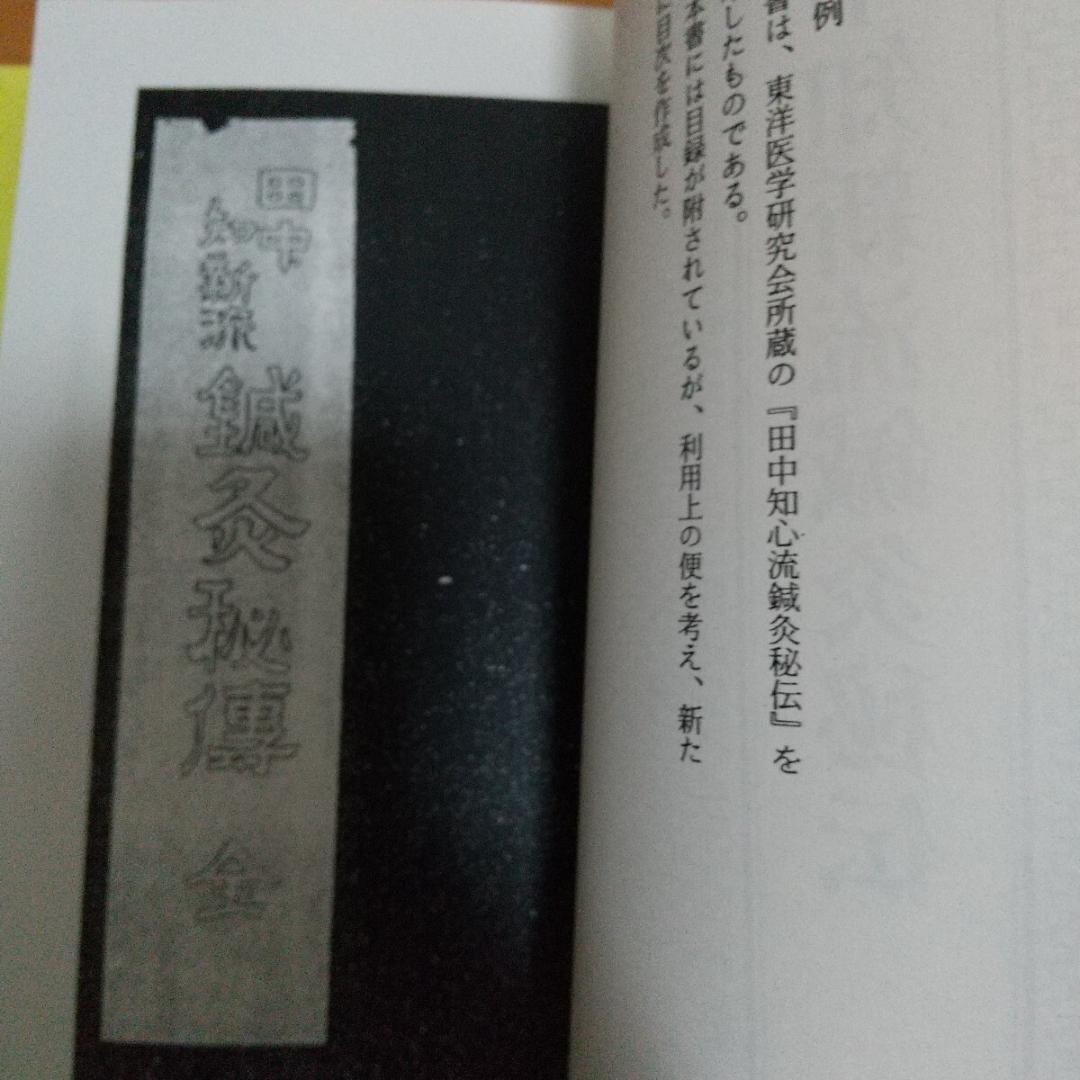 例
書は、東洋医学研究会所蔵の『田中知心流鍼灸秘伝』を
したものである。
本書には目録が附されているが、利用上の便を考え、新た
に目次を作成した。
田中
知新流
鍼灸秘傳 全